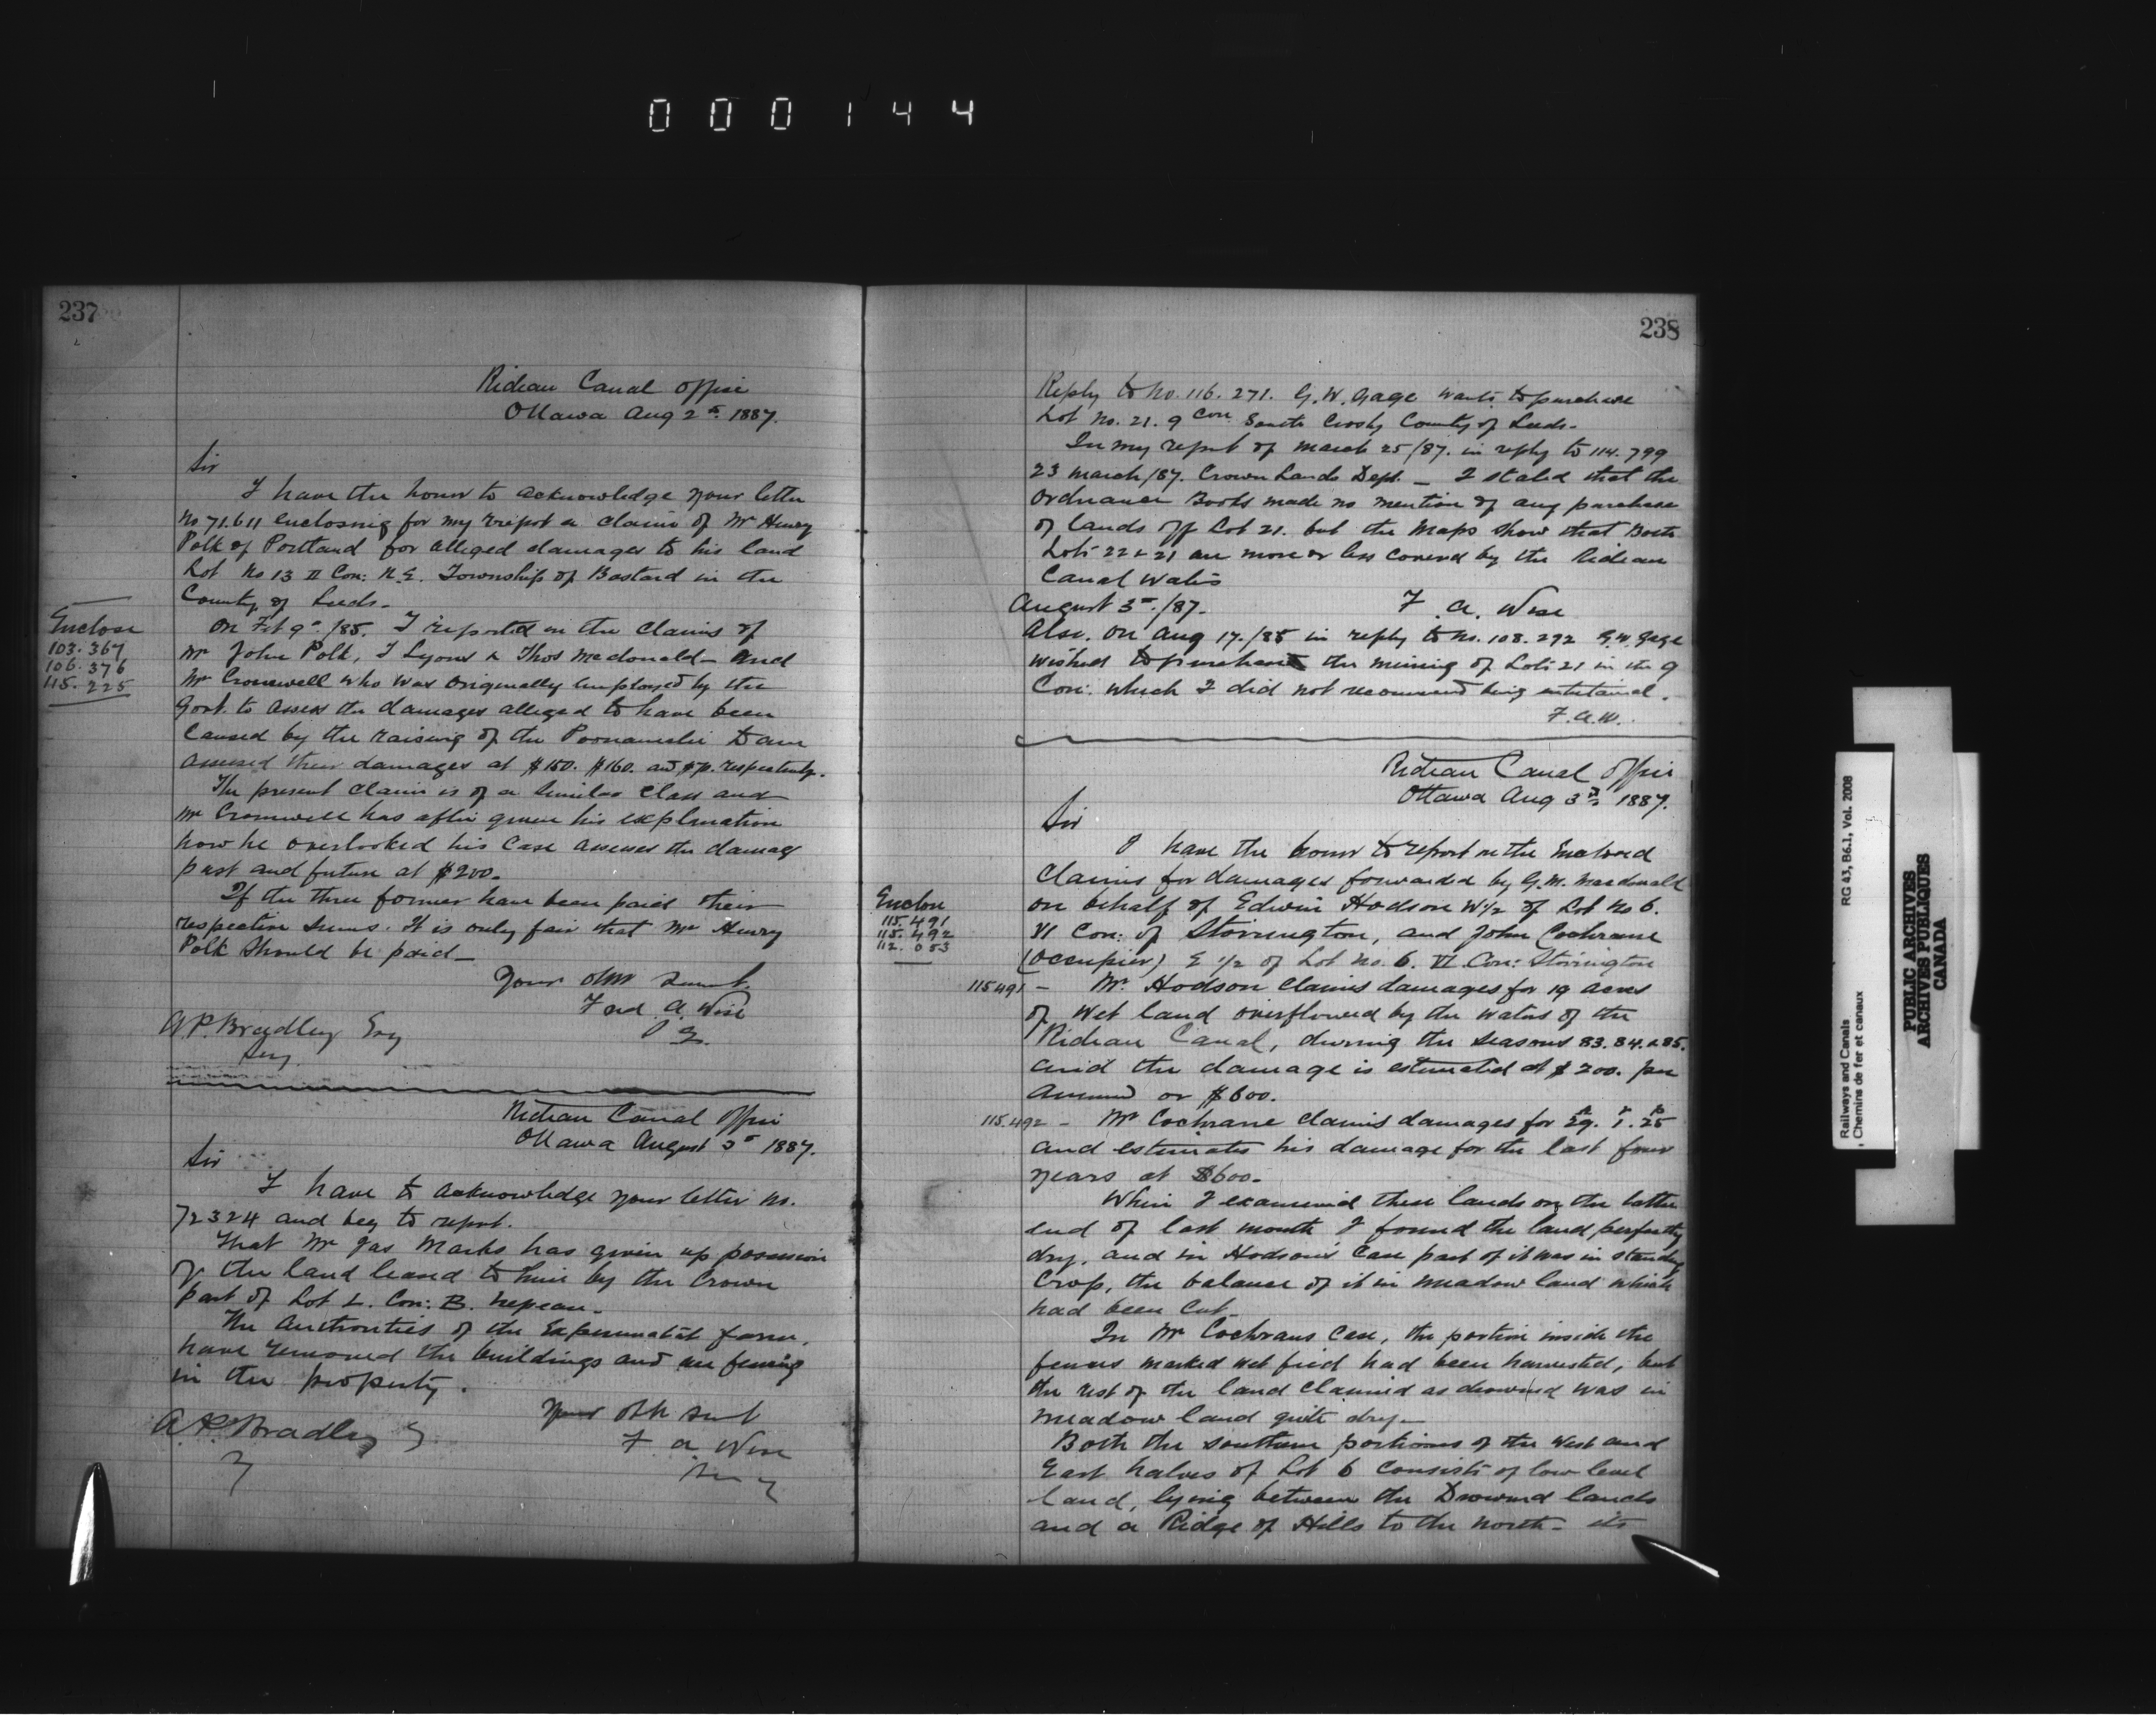 000144
237
Rideau Canal Office
Ottawa Aug 2nd 1887.
Sir
I have the honor to acknowledge your letter
No 71.611 enclosing for my report a claim of Mr Henry
Polk of Portland for alleged damages to his land
Lot No 13 II Con: N.E. Township of Bastard in the
County of Leeds.
Enclose
103.367
106.376
115.225
On Feb 9th /85. I reported on the claims of
Mr John Polk, J Lyons & Thos McDonald - and
Mr Cromwell who was originally employed by the
Govt. to assess the damages alleged to have been
caused by the raising of the Poonamalie Dam
assessed their damages at $150. $160. and respectively.
The present claim is of a similar class and
Mr Cromwell has after given his explanation
how he overlooked his case assesses the damage
past and future at $200.
If the three former have been paid their
respective sums. It is only fair that Mr Henry
Polk should be paid -
Your Obt Servt.
Fred A. Wise
A.P. Bradley Esq
Secy.
Rideau Canal Office
Ottawa August 3rd 1887.
Sir
I have to acknowledge your letter No.
72324 and beg to report.
That Mr Jas Marks has given up possession
of the land leased to him by the Crown
part of Lot L. Con: B. Nepean.
The Authorities of the Experimental farm,
have removed the buildings and are fencing
in the property.
Your Obt Servt
F. A. Wise
A.P. Bradley
238
Reply to No. 116.271. G.W. Gage wants to purchase
Lot No. 21. 9 Con South Crosby County of Leeds.
In my report of March 25/87. in reply to 114.799
23 March/87. Crown Lands Dept. - I stated that the
Ordnance Books made no mention of any purchase
of lands off Lot 21. but the Maps show that Both
Lots 22 & 21 are more or less covered by the Rideau
Canal Waters
August 3rd /87. F. A. Wise
Also. On Aug 17./85 in reply to No. 108.292 G.W. Gage
wished to purchase the mining of Lots 21 in the 9
Con: which I did not recommend being entertained.
F.A.W.
Rideau Canal Office
Ottawa Aug 3rd 1887.
Sir
I have the honor to report on the Enclosed
Claims for damages forwarded by G.M. Macdonald
on behalf of Edwin Hodson W½ of Lot No 6.
VI Con: of Storrington, and John Cochrane
(Occupier) E ½ of Lot No. 6. VI Con: Storrington
Enclose
115.491
115.492
112.053
115491 - Mr. Hodson claims damages for 19 acres
of wet land overflowed by the waters of the
Rideau Canal, during the seasons 83. 84. & 85.
and the damage is estimated at $200. per
Annum or $600.
115.492 - Mr Cochrane claims damages for 29. 1. 25
and estimates his damage for the last four
years at $600.
When I examined these lands on the latter
end of last month I found the land perfectly
dry. and in Hodson's case part of it was in standing
Crop, the balance of it in meadow land which
had been cut.
In Mr Cochrans case, the portion inside the
fences marked wet field had been harvested, but
the rest of the land claimed as drowned was in
meadow land quite dry -
Both the southern portions of the West and
East halves of Lot 6 consists of low level
land, lying between the Drowned lands
and a Ridge of Hills to the North - its
Railways and Canals RG 43, B6.1, Vol. 2008
Chemins de fer et canaux
PUBLIC ARCHIVES
ARCHIVES PUBLIQUES
CANADA